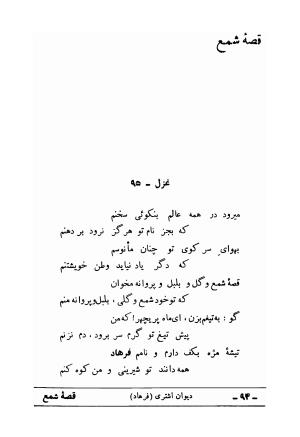 قصهٔ شمع
غزل - ۹۵
میرود در همه عالم بنکوئی سخنم
که بجز نام تو هرگز نرود بر دهنم
بهوای سر کوی تو چنان مأنوسم
که دگر یاد نیاید وطن خویشتنم
قصهٔ شمع و گل و بلبل و پروانه مخوان
که تو خود شمع و گلی، بلبل و پروانه منم
گو: به تیغم بزن، ای ماه پریچهر! که من
پیش تیغ تو گرم سر برود، دم نزنم
تیشهٔ مژه بکف دارم و نامم فرهاد
همه دانند تو شیرینی و من کوه کنم
قصهٔ شمع دیوان اشتری (فرهاد) - ۹۴ -